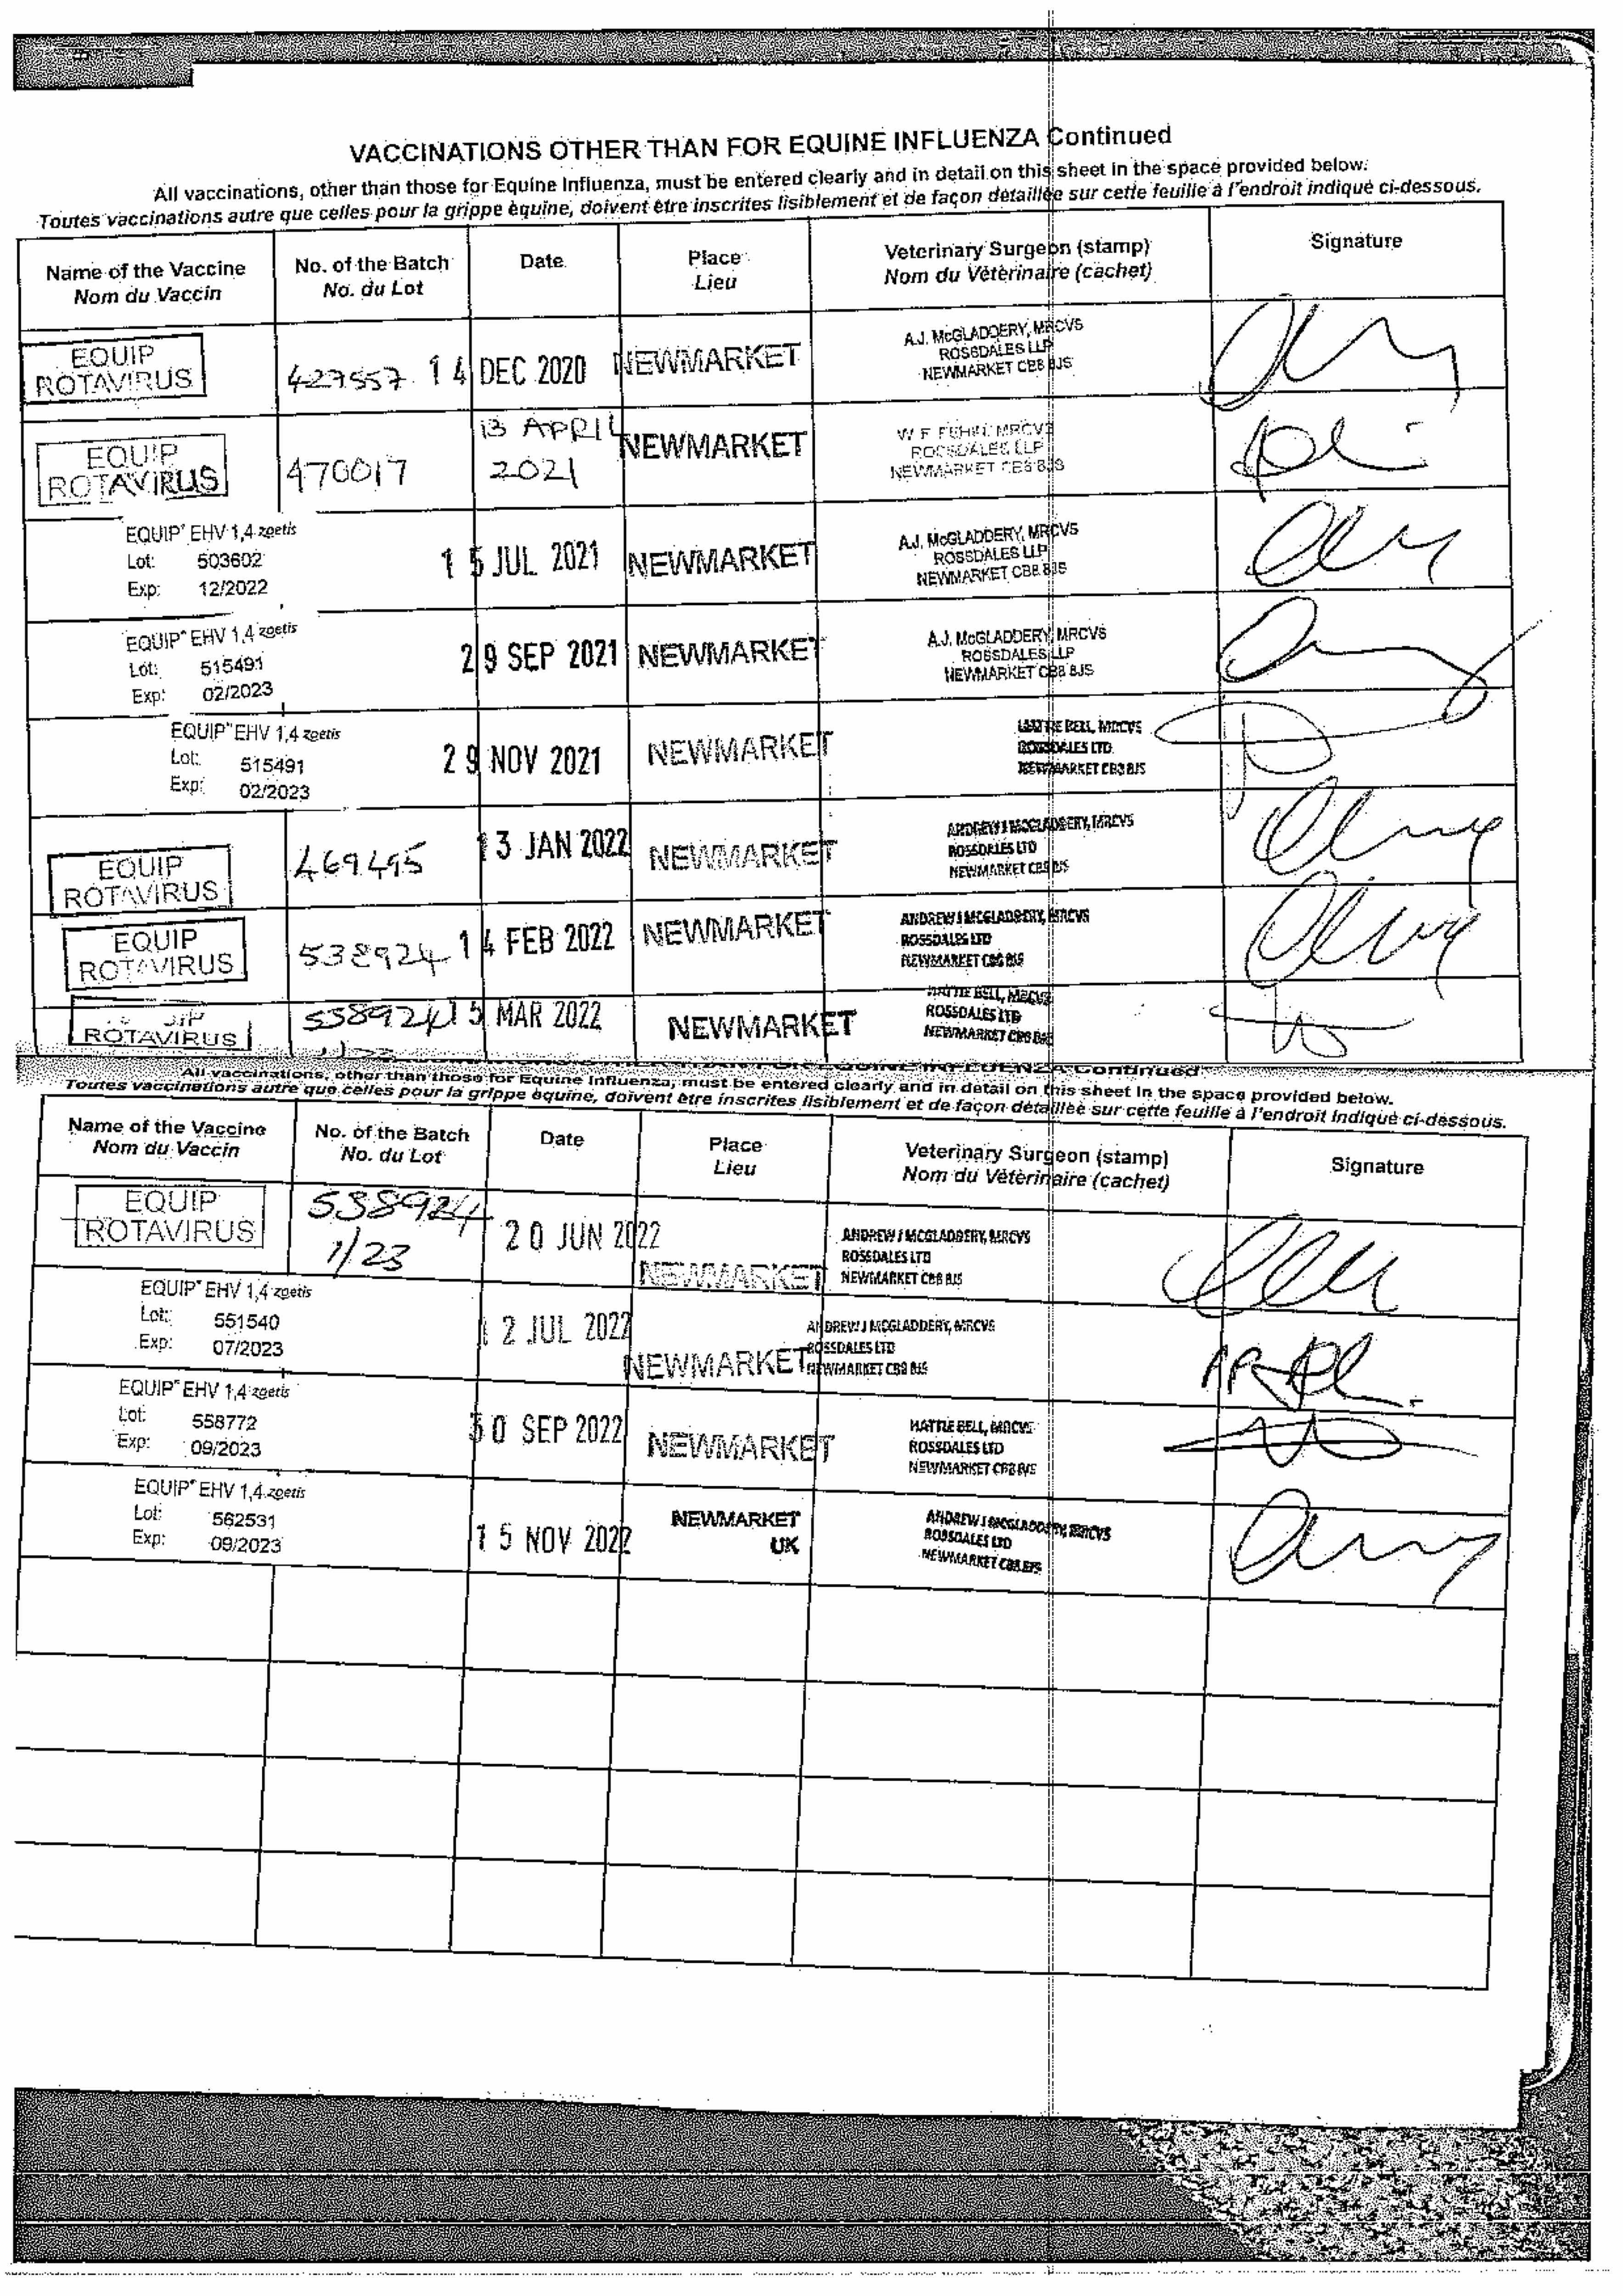 VACCINATIONS OTHER THAN FOR EQUINE INFLUENZA Continued
All vaccinations, other than those for Equine Influenza, must be entered clearly and in detail on this sheet in the space provided below.
Toutes vaccinations autre que celles pour la grippe équine, doivent être inscrites lisiblement et de façon détaillée sur cette feuille à l'endroit indiqué ci-dessous.
Name of the Vaccine No. of the Batch Date Place Veterinary Surgeon (stamp) Signature
Nom du Vaccin No. du Lot Lieu Nom du Vétérinaire (cachet)
EQUIP
ROTAVIRUS 427557 14 DEC 2020 NEWMARKET
A.J. McGLADDERY, MRCVS
ROSSDALES LLP
NEWMARKET CB8 8JS
EQUIP
ROTAVIRUS 470017
13 APRIL
2021
NEWMARKET
W F MRCVS
ROSSDALES LLP
NEWMARKET CB8 8JS
EQUIP EHV 1,4 zoetis
Lot: 503602
Exp: 12/2022
15 JUL 2021 NEWMARKET
A.J. McGLADDERY, MRCVS
ROSSDALES LLP
NEWMARKET CB8 8JS
EQUIP EHV 1,4 zoetis
Lot: 515491
Exp: 02/2023
29 SEP 2021 NEWMARKET
A.J. McGLADDERY, MRCVS
ROSSDALES LLP
NEWMARKET CB8 8JS
EQUIP EHV 1,4 zoetis
Lot: 515491
Exp: 02/2023
29 NOV 2021 NEWMARKET
HATTIE BELL, MRCVS
ROSSDALES LTD
NEWMARKET CB8 8JS
EQUIP
ROTAVIRUS 469495 13 JAN 2022 NEWMARKET
ANDREW J MCGLADDERY, MRCVS
ROSSDALES LTD
NEWMARKET CB8 8JS
EQUIP
ROTAVIRUS 538924 14 FEB 2022 NEWMARKET
ANDREW J MCGLADDERY, MRCVS
ROSSDALES LTD
NEWMARKET CB8 8JS
ROTAVIRUS 538924 15 MAR 2022 NEWMARKET
HATTIE BELL, MRCVS
ROSSDALES LTD
NEWMARKET CB8 8JS
EQUINE INFLUENZA Continued
All vaccinations, other than those for Equine Influenza, must be entered clearly and in detail on this sheet in the space provided below.
Toutes vaccinations autre que celles pour la grippe équine, doivent être inscrites lisiblement et de façon détaillée sur cette feuille à l'endroit indiqué ci-dessous.
Name of the Vaccine No. of the Batch Date Place Veterinary Surgeon (stamp) Signature
Nom du Vaccin No. du Lot Lieu Nom du Vétérinaire (cachet)
EQUIP
ROTAVIRUS
538924
1/23
20 JUN 2022 NEWMARKET
ANDREW J MCGLADDERY, MRCVS
ROSSDALES LTD
NEWMARKET CB8 8JS
EQUIP EHV 1,4 zoetis
Lot: 551540
Exp: 07/2023
12 JUL 2022 NEWMARKET
ANDREW J MCGLADDERY, MRCVS
ROSSDALES LTD
NEWMARKET CB8 8JS
EQUIP EHV 1,4 zoetis
Lot: 558772
Exp: 09/2023
30 SEP 2022 NEWMARKET
HATTIE BELL, MRCVS
ROSSDALES LTD
NEWMARKET CB8 8JS
EQUIP EHV 1,4 zoetis
Lot: 562531
Exp: 09/2023
15 NOV 2022
NEWMARKET
UK
ANDREW J MCGLADDERY, MRCVS
ROSSDALES LTD
NEWMARKET CB8 8JS